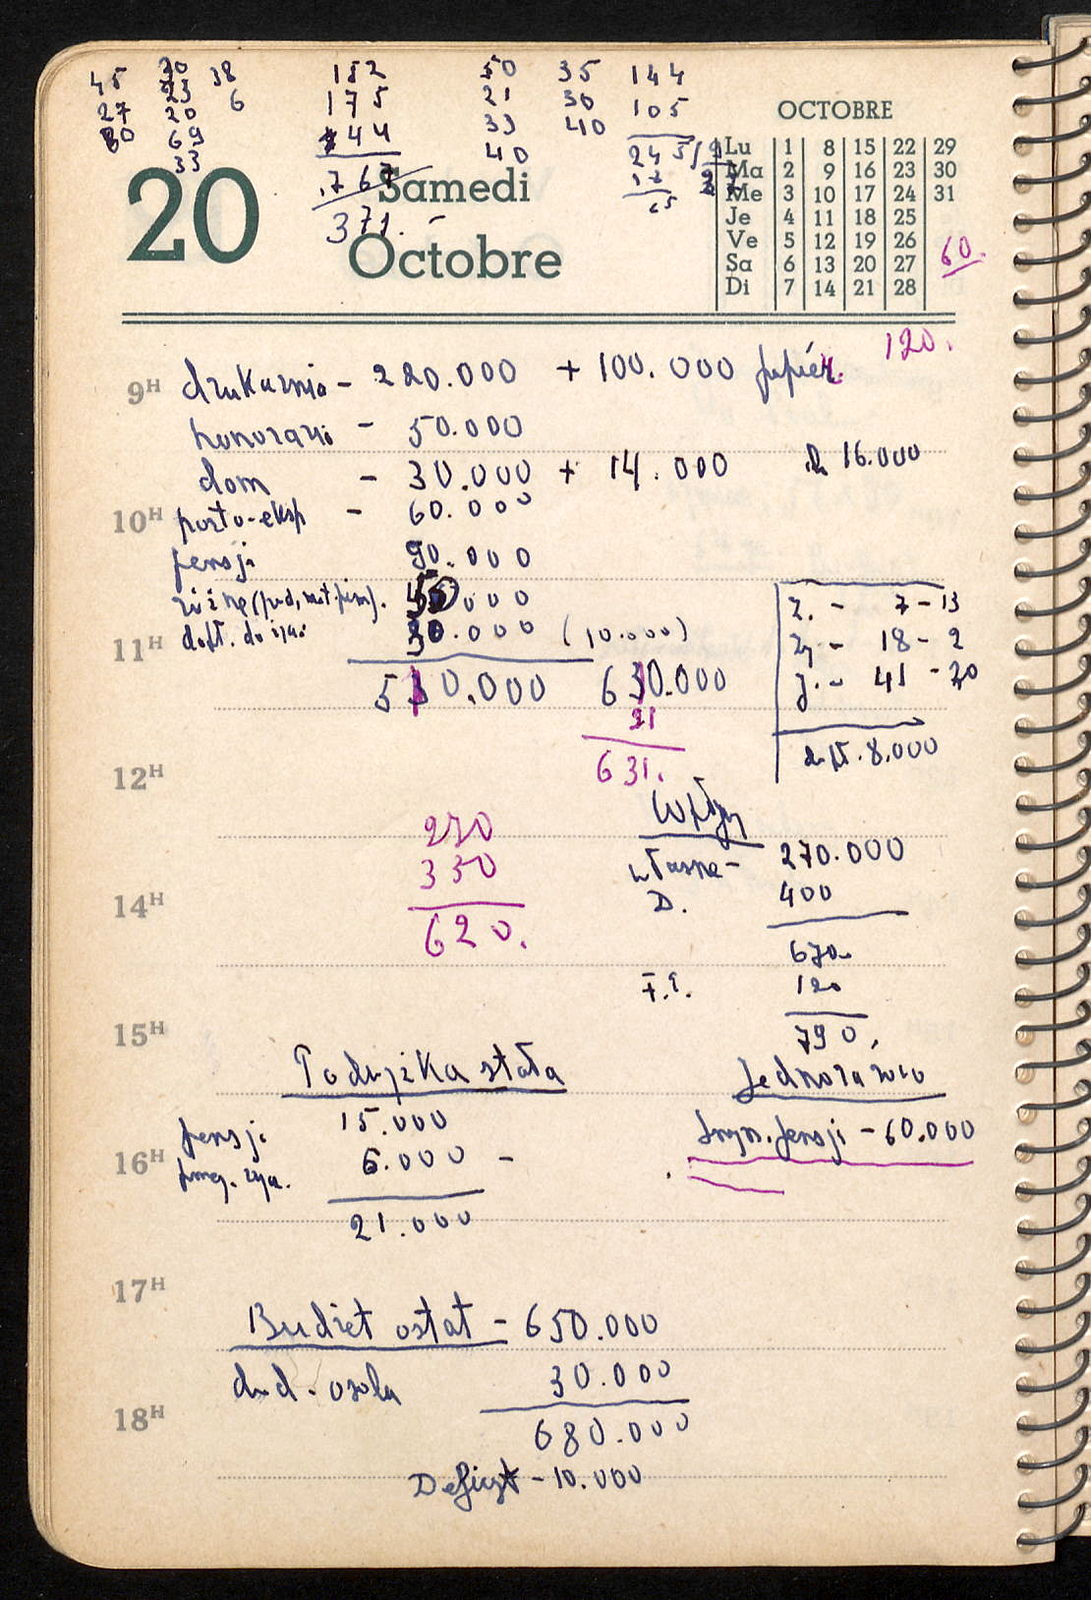 45 20 38 182 50 35 144
27 23 6 175 21 30 105
30 20 44 33 40
69 40 245
33 767 12
371. - 25
20
Samedi
Octobre
OCTOBRE
Lu 1 8 15 22 29
Ma 2 9 16 23 30
Me 3 10 17 24 31
Je 4 11 18 25
Ve 5 12 19 26
Sa 6 13 20 27
Di 7 14 21 28
60.
120.
9H drukarnia - 220.000 + 100.000 papier
honoraria - 50.000
dom - 30.000 + 14.000 16.000
10H porto-eksp - 60.000
pensji 90.000
różne 50.000
11H 30.000 (10.000)
530.000 630.000
21
631.
Z. - 7 - 13
18 - 2
J. - 41 - 20
8.000
12H
Wpływy
własne - 270.000
D. 400
670.
120
790.
290
330
620.
14H
15H
Podwyżka stała
pensji 15.000
16H 6.000 -
21.000
Jednorazowo
pensji - 60.000
17H
Budżet ostat - 650.000
30.000
18H
680.000
Deficyt - 10.000